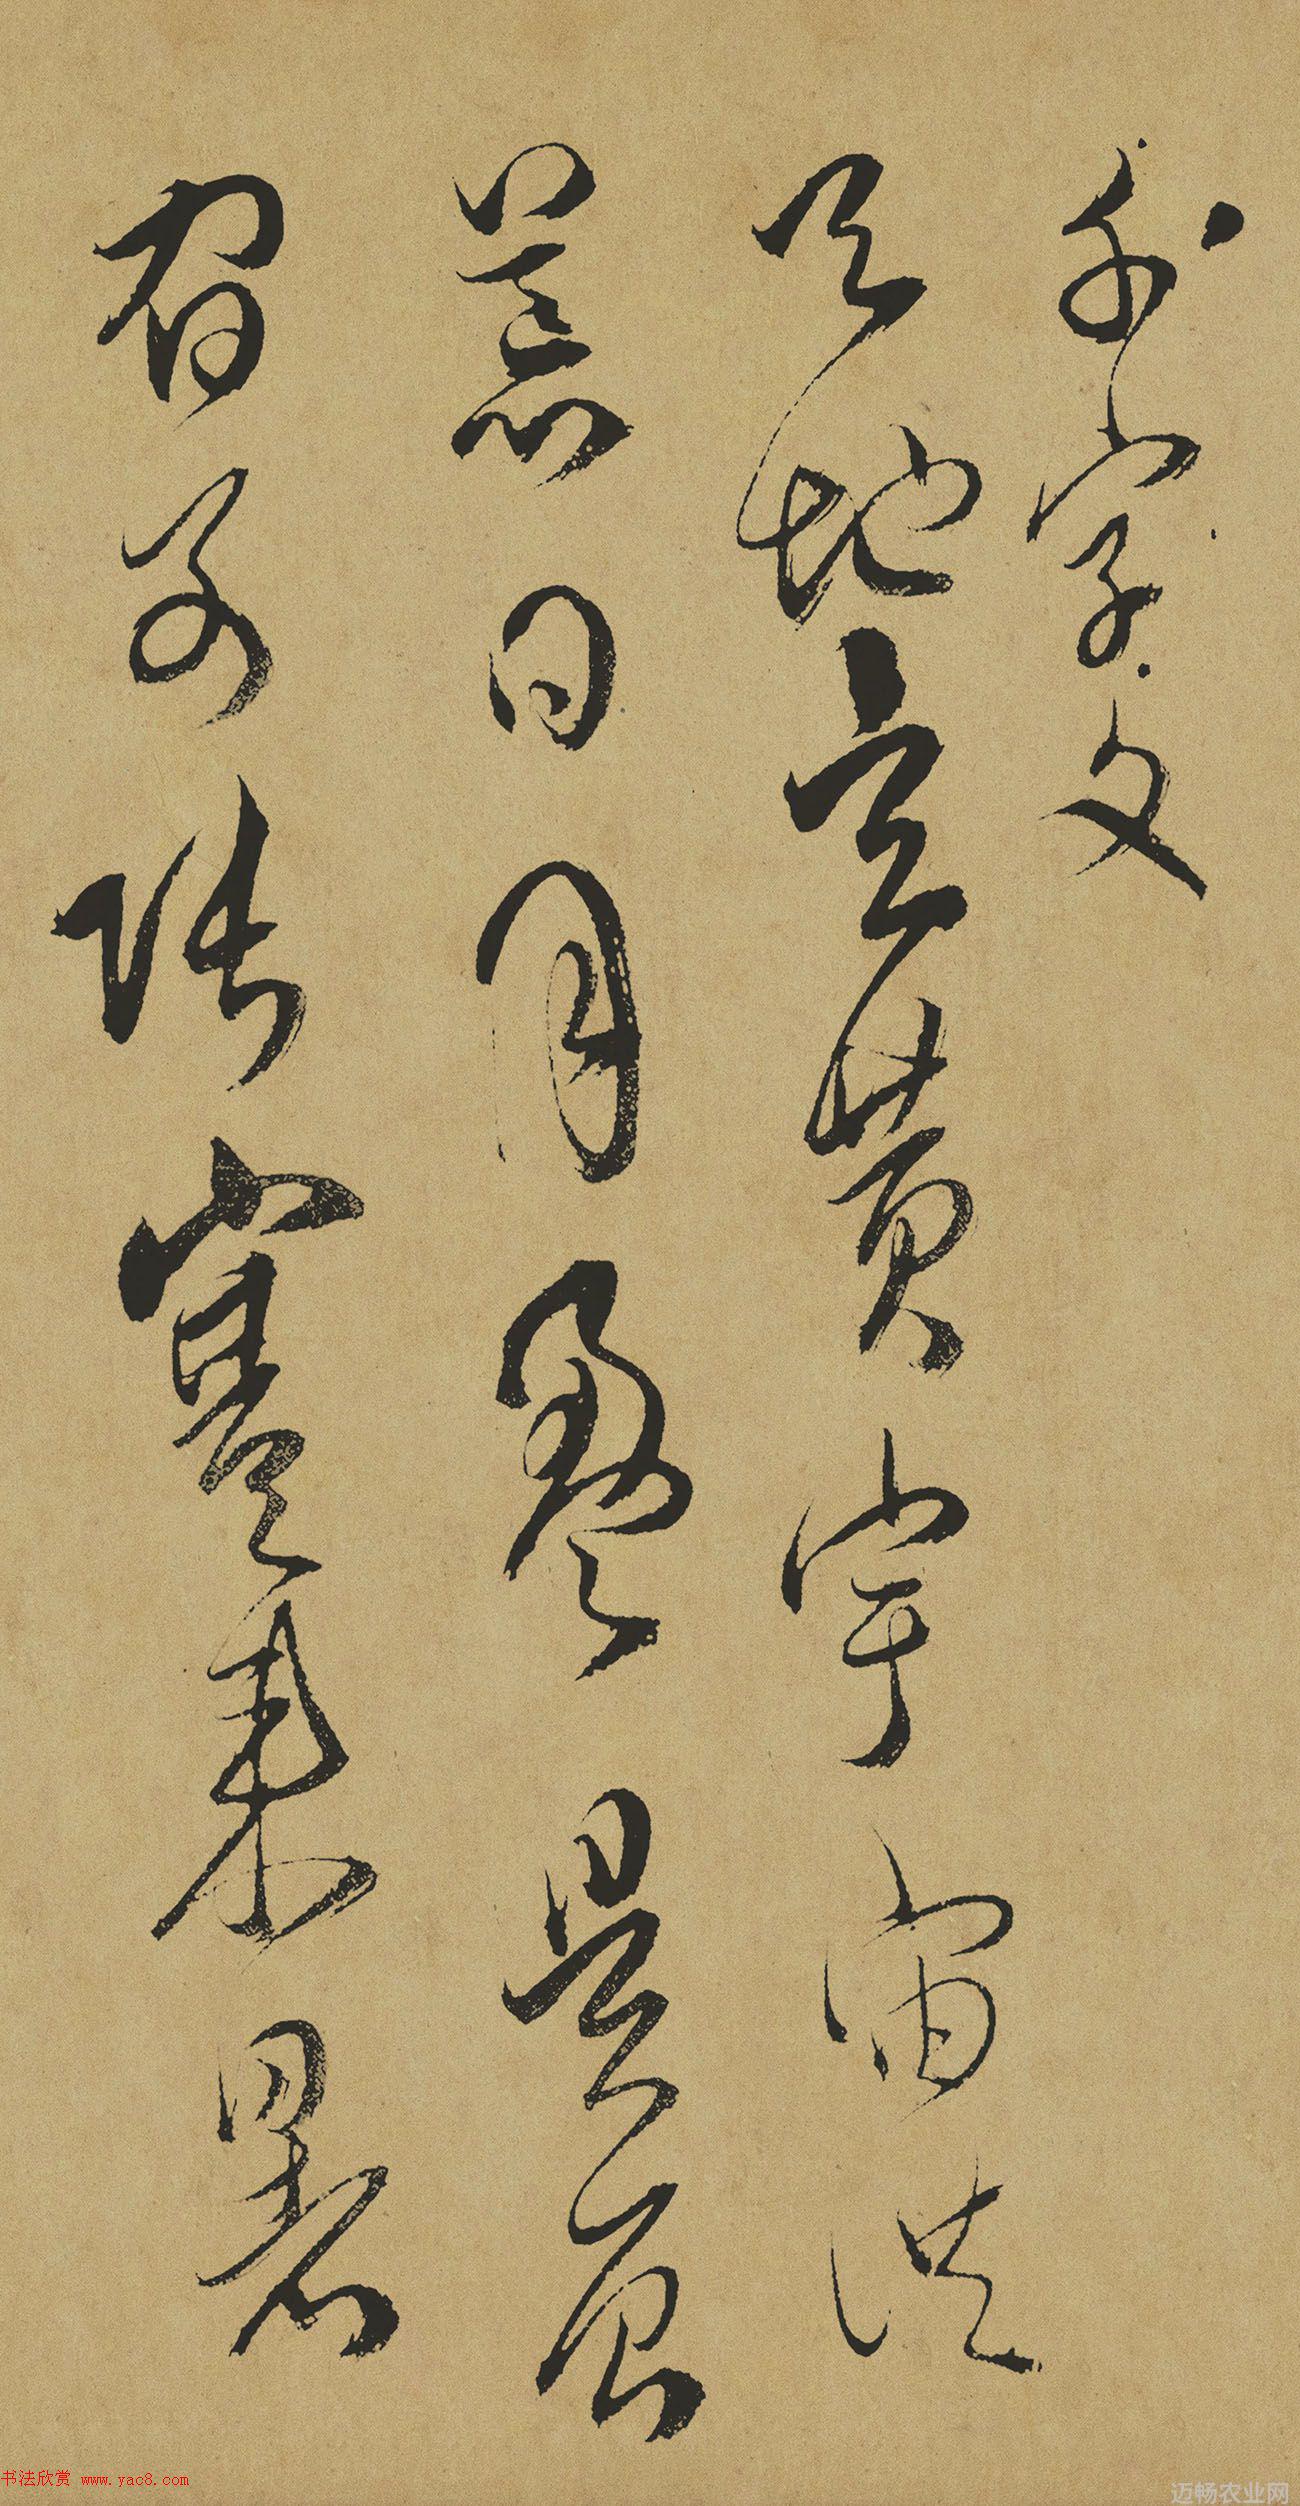 千字文
天地玄黄宇宙洪
荒日月盈昃辰
宿列张寒来暑
书法欣赏 www.yac8.com
迈畅农业网